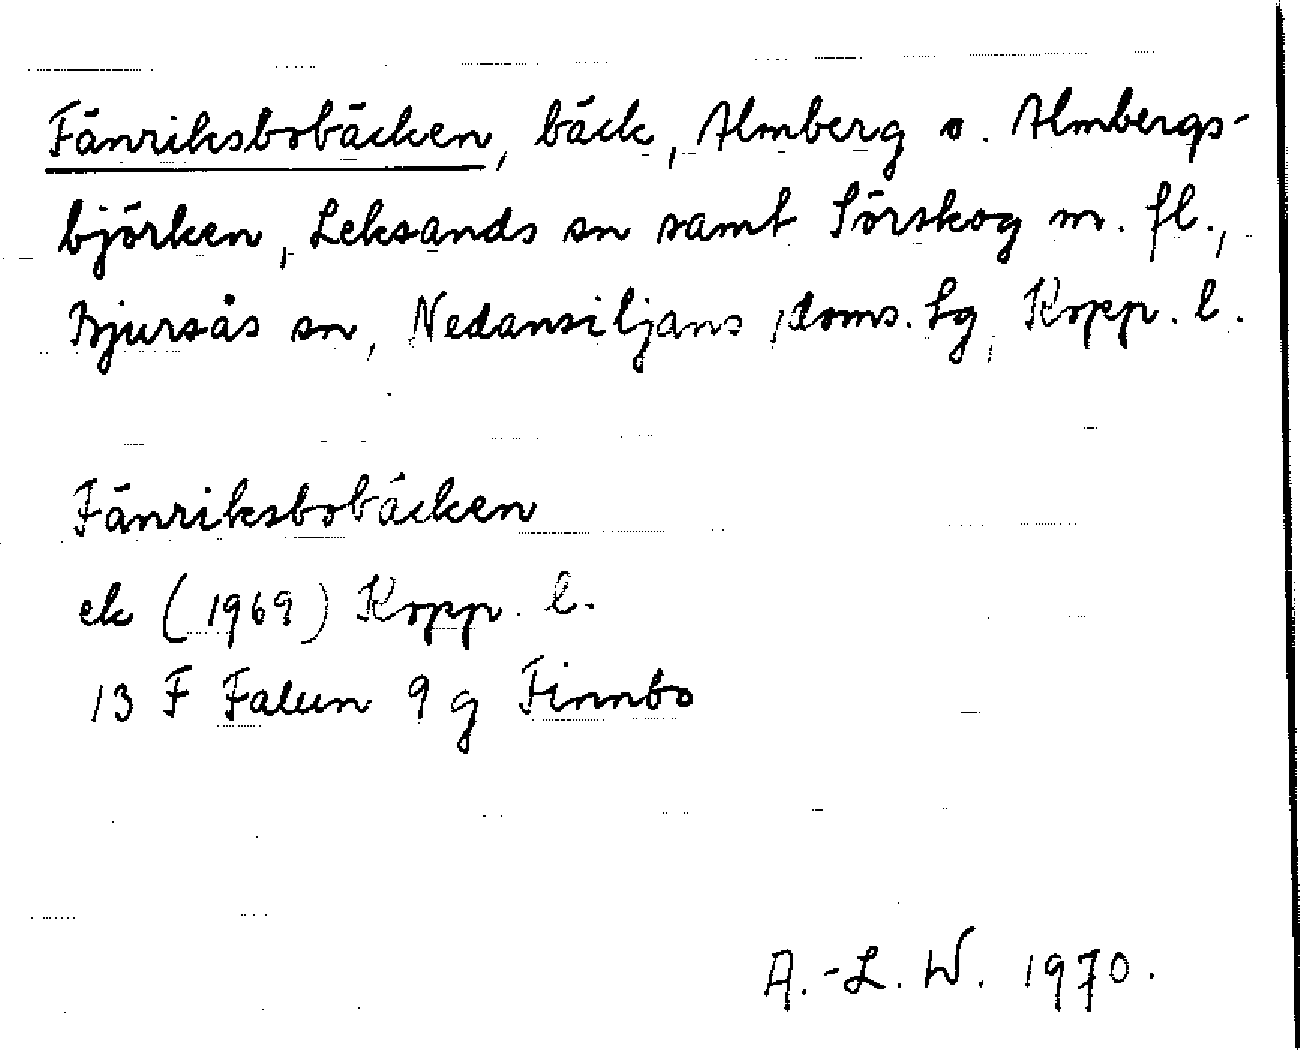 Fänriksbobäcken, bäck, Almberg o. Almbergs-
björken, Leksands sn samt Sörskog m. fl.,
Bjursås sn, Nedansiljans doms. lg, Kopp. l.
Fänriksbobäcken
ek (1969) Kopp. l.
13 F Falun 9 g Finnbo
A.-L. W. 1970.